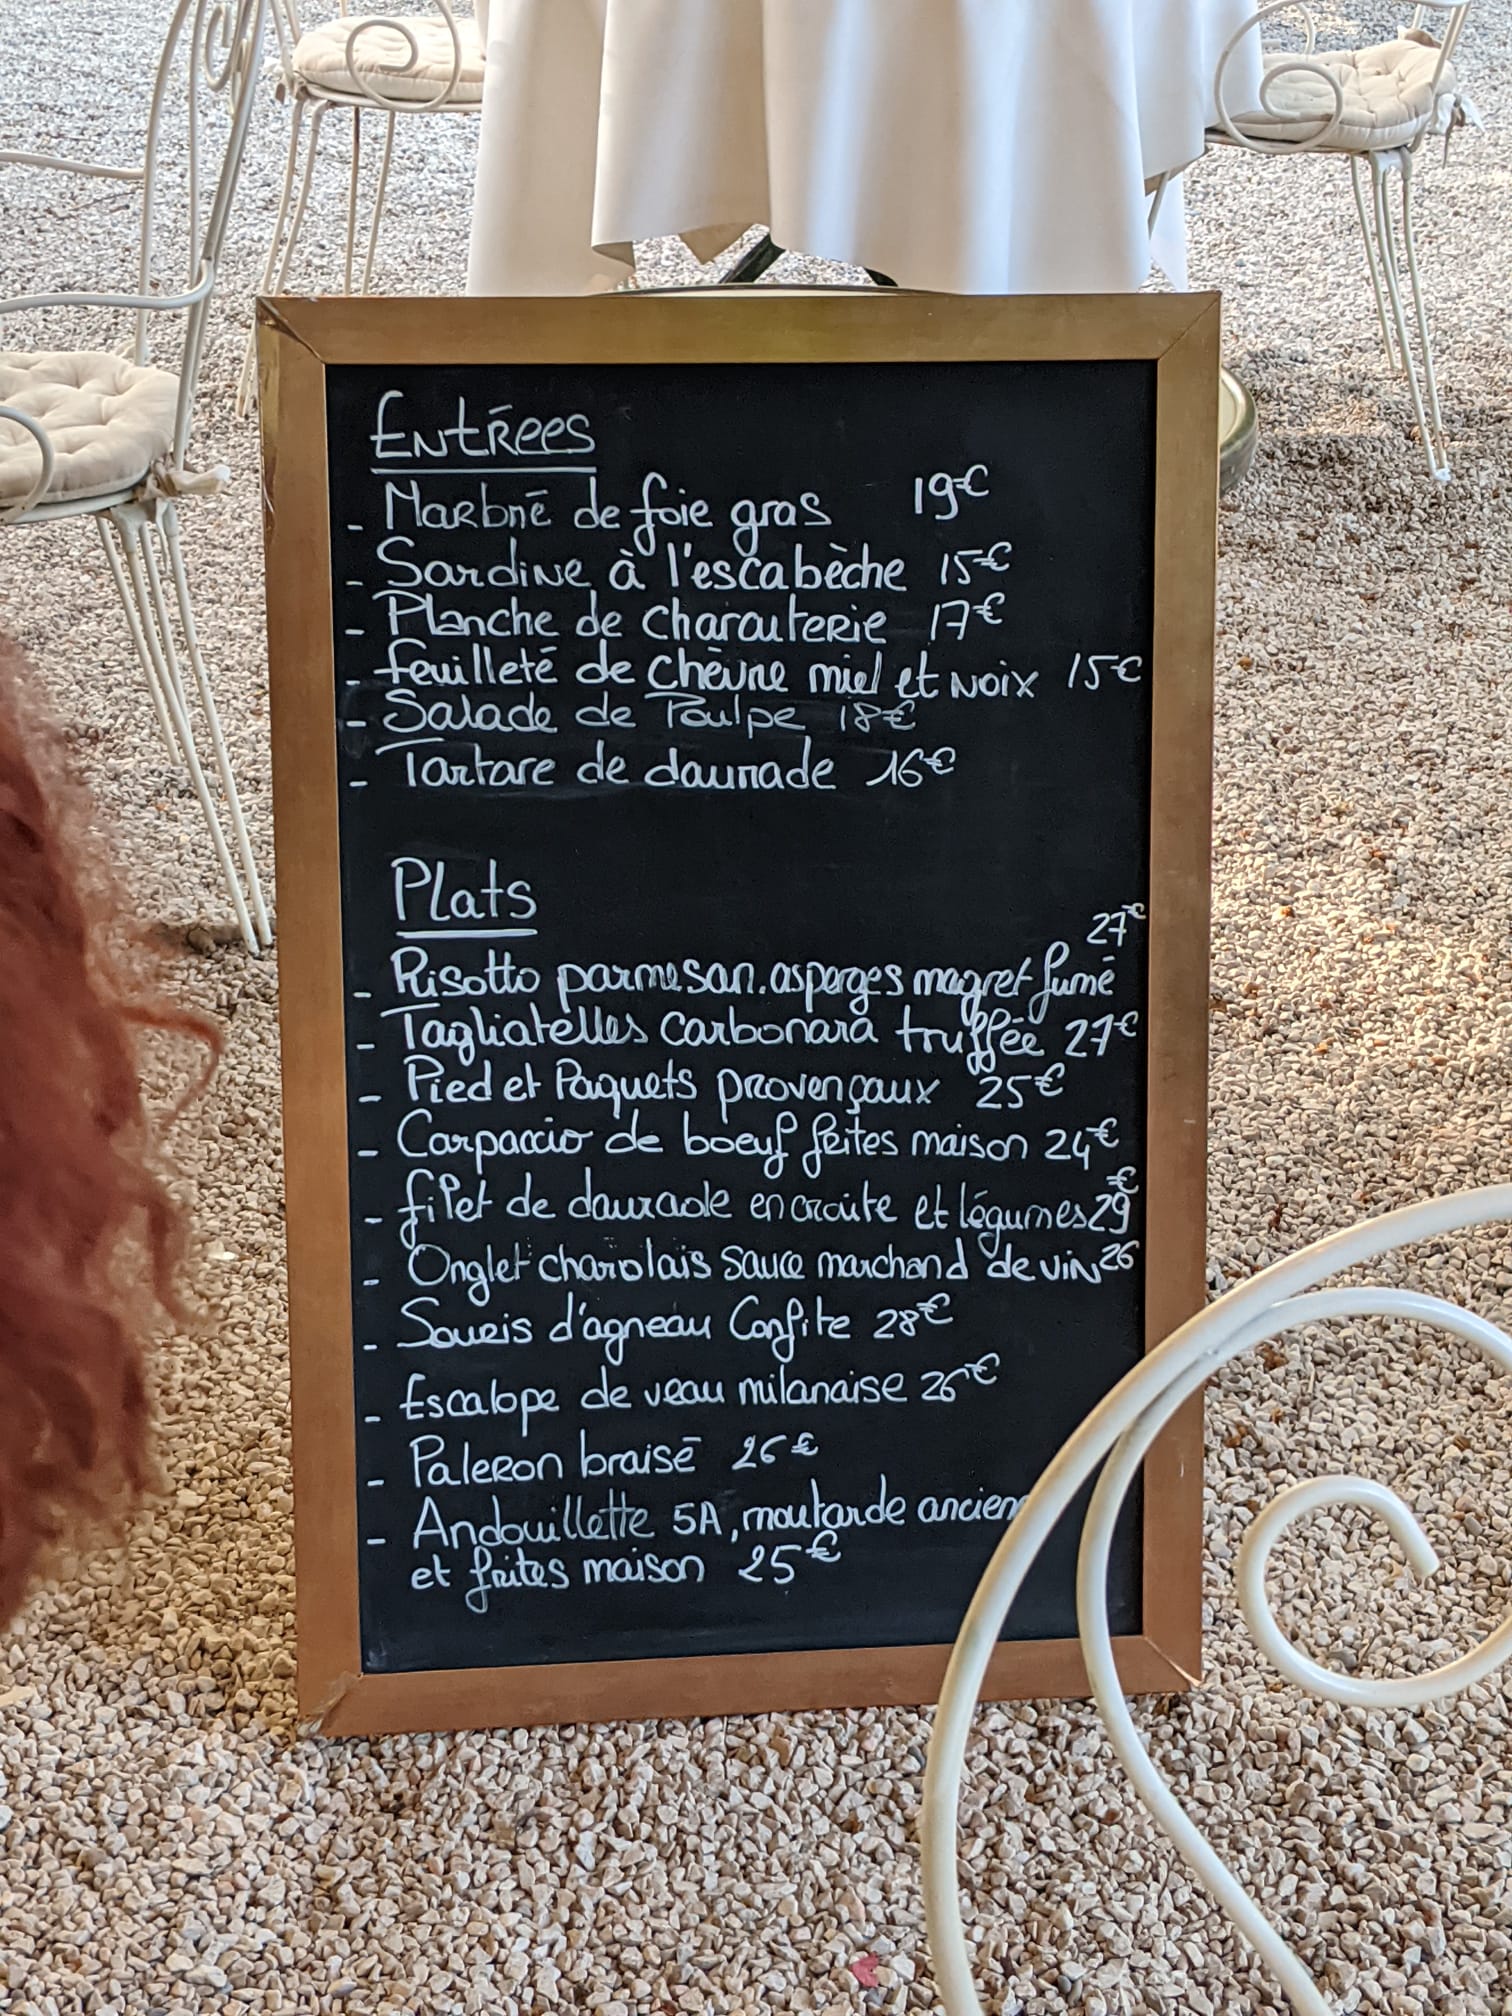 Entrées
- Marbré de foie gras 19€
- Sardine à l'escabèche 15€
- Planche de charcuterie 17€
- feuilleté de chèvre miel et noix 15€
- Salade de Poulpe 18€
- Tartare de daurade 16€
Plats
27€
- Risotto parmesan.asperges magret fumé
- Tagliatelles carbonara truffée 27€
- Pied et Paquets provençaux 25€
- Carpaccio de boeuf frites maison 24€
- filet de daurade en croûte et légumes 29€
- Onglet charolais sauce marchand de vin 26
- Souris d'agneau Confite 28€
- Escalope de veau milanaise 26€
- Paleron braisé 26€
- Andouillette 5A, moutarde ancien
et frites maison 25€